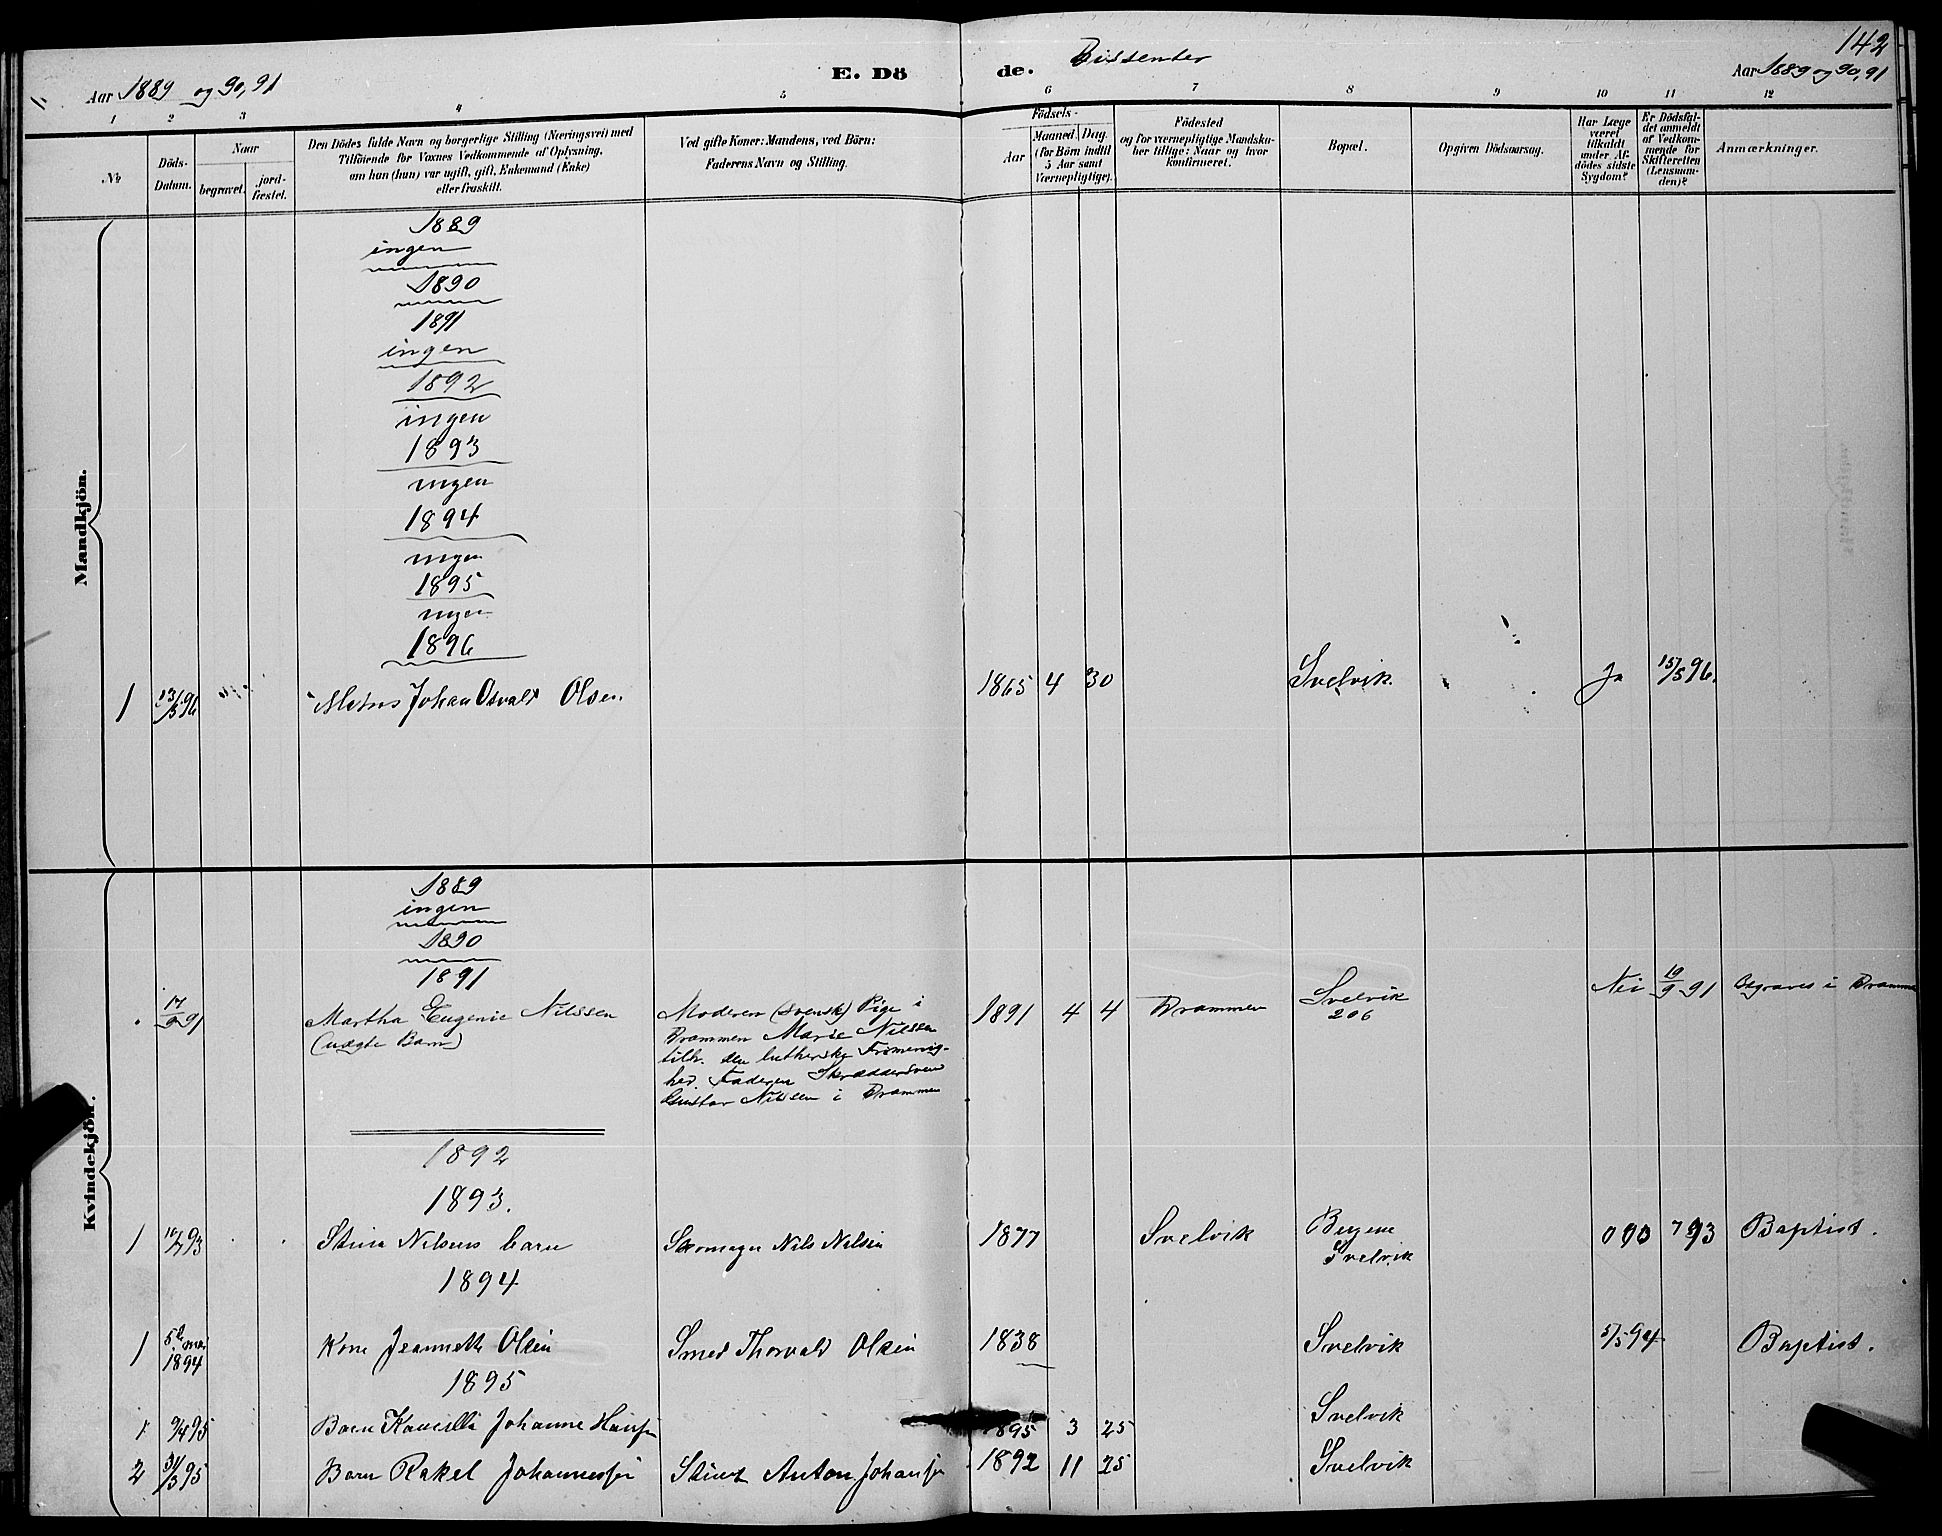 142
Aar 1889 og 90, 91
E. Dö
de.
Dissenter
Aar 1889 og 90, 91
1 2 3 4 5 6 7 8 9 10 11 12
No
Döds-
Datum.
Naar
begravet.
jord-
fæstet.
Den Dödes fulde Navn og borgerlige Stilling (Næringsvei) med
Tilföiende for Voxnes Vedkommende af Oplysning,
om han (hun) var ugift, gift, Enkemand (Enke)
eller fraskilt.
Ved gifte Koner: Mandens, ved Börn:
Faderens Navn og Stilling.
Födsels-
Aar
Maaned. Dag.
(for Börn indtil
5 Aar samt
Værnepligtige).
Födested
og for værnepligtige Mandska-
ber tillige: Naar og hvor
konfirmeret.
Bopæl.
Opgiven Dödsaarsag.
Har Læge
været
tilkaldt
under Af-
dödes sidste
Sygdom?
Er Dödsfal-
det anmeldt
af Vedkom-
mende for
Skifteretten
(Lensman-
den)?
Anmærkninger.
Mandkjön.
1889
ingen
1890
1891
ingen
1892
ingen
1893
ingen
1894
ingen
1895
ingen
1896
1 13/5 96 Johan Osvald Olsen 1865 4 30 Svelvik. Ja 15/5 96.
Kvindekjön.
1889
ingen
1890
1891
17/9 91 Martha Eugenie Nilssen 1891 4 4 Drammen Svelvik Nei 19/9 91 Begraves i Dramme
206
(uægte Barn)
Moderen (svensk) Pige i
Drammen Marie Nilssen
tilh. den lutherske
Faderen Skræddersvend
Gustav Nilssen i Drammen
1892
1893.
1 93 Stina Nilsens barn Skomager Nils Nilsen 1877 Svelvik Bergene 93 Baptist.
Svelvik
1894
1 5te mai
1894 Kone Jeanneth Olsen Smed Thorvald Olsen 1838 Svelvik 5/5 94 Baptist.
1895
1 9/4 95 Barn Johanne Hansen 1895 3 25 Svelvik
2 31/3 95 Barn Rakel Johannessen Anton Johansen 1892 11 25 Svelvik